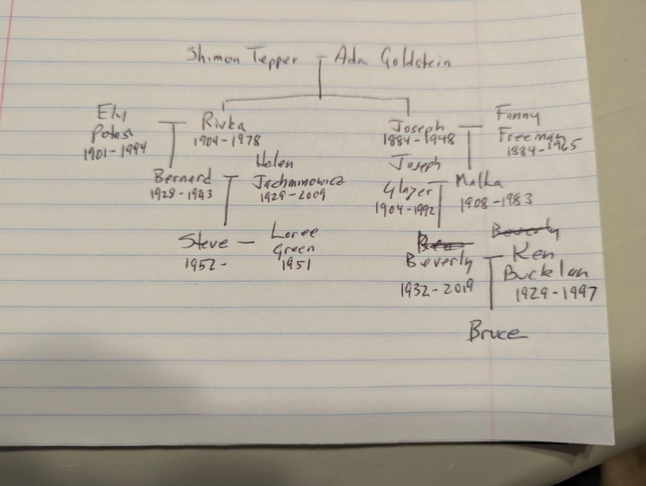 Shimon Tepper Ada Goldstein
Ely
Potash
1901-1994
Rivka
1904-1978
Joseph
1884-1948
Fanny
Freeman
1884-1965
Bernard
1928-1993
Helen
Jachimowicz
1929-2009
Joseph
Glazer
1904-1992
Malka
1908-1983
Steve
1952-
Loree
Green
1951
Beverly
Beverly
1932-2019
Ken
Bucklan
1929-1997
Bruce